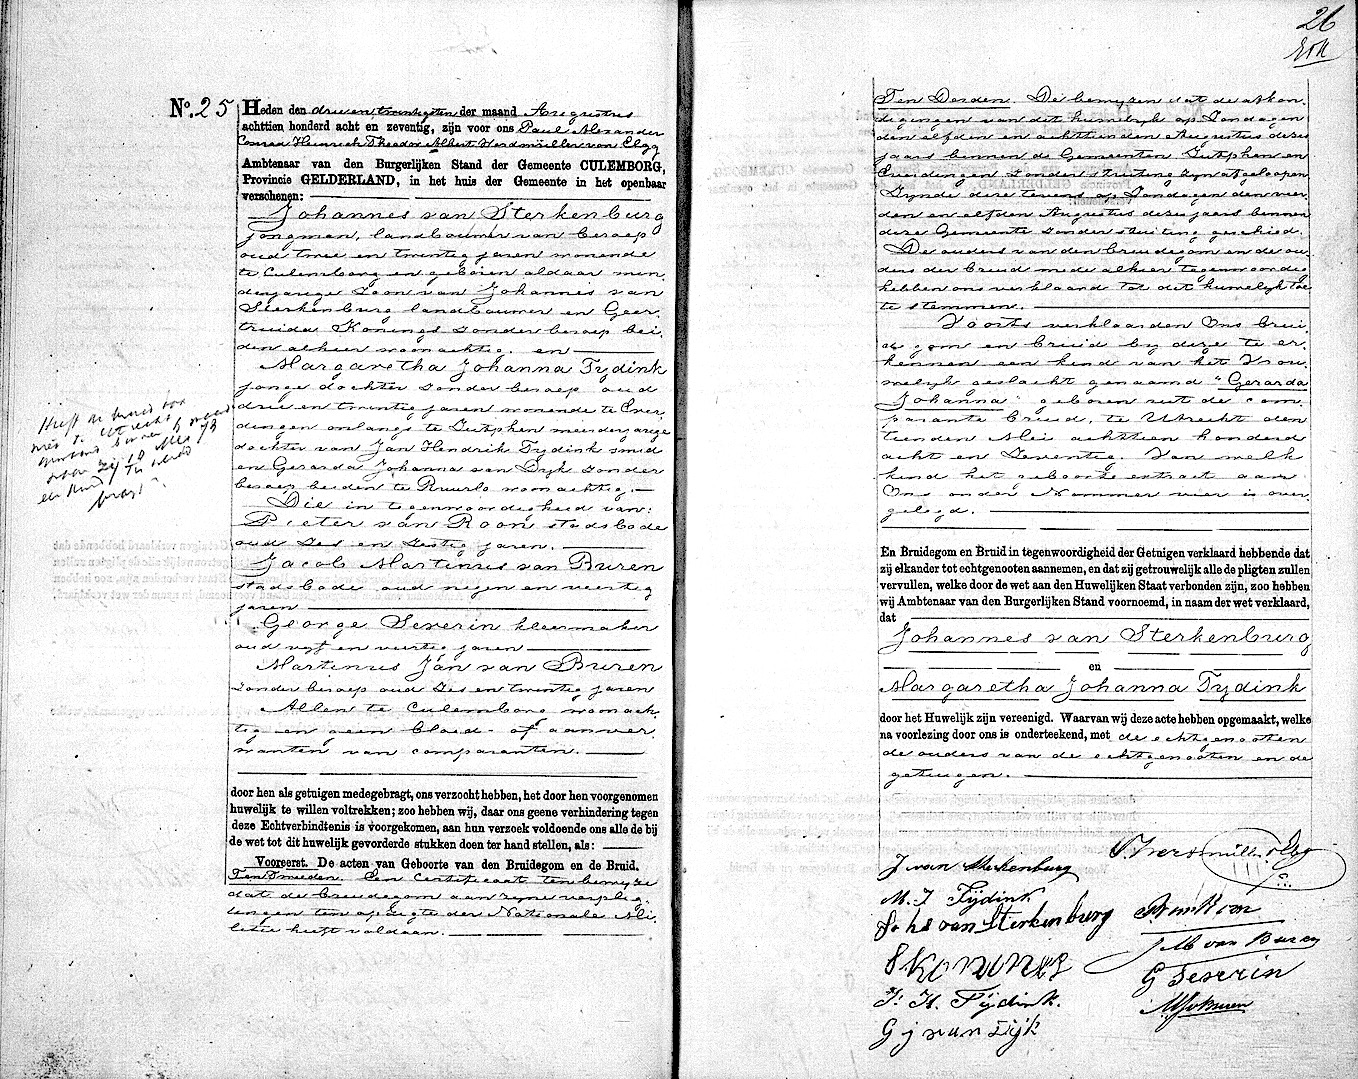 26
No. 25
Heden den drie en twintigsten der maand Augustus
achttien honderd acht en zeventig, zijn voor ons Paul Alexander
Conrad Heinrich Theodor Albert Verstmüller von Elgg
Ambtenaar van den Burgerlijken Stand der Gemeente CULEMBORG,
Provincie GELDERLAND, in het huis der Gemeente in het openbaar
verschenen:
Johannes van Sterkenburg
jongman, landbouwer van beroep
oud twee en twintig jaren wonende
te Culemborg en geboren aldaar min,
derjarige zoon van Johannis van
Sterkenburg landbouwer en Geer,
truida Konings zonder beroep bei,
den alhier woonachtig. en
Margaretha Johanna Tydink
jonge dochter zonder beroep oud
drie en twintig jaren wonende te Ever,
dingen onlangs te Zutphen meinderjarige
dochter van Jan Hendrik Tydink smid
en Gerarda Johanna van Dyk zonder
beroep beiden te Ruurlo woonachtig.
Die in tegenwoordigheid van:
Pieter van Roon stadsbode
oud zes en zestig jaren.
Jacob Martinus van Buren
stadsbode oud negen en veertig
jaren
George Severin kleermaker
oud vyf en veertig jaren
Martinus Jan van Buren
zonder beroep oud zes en twintig jaren
Allen te Culemborg woonach,
tig en geen bloed- of aanver,
wanten van comparanten.
door hen als getuigen medegebragt, ons verzocht hebben, het door hen voorgenomen
huwelijk te willen voltrekken; zoo hebben wij, daar ons geene verhindering tegen
deze Echtverbindtenis is voorgekomen, aan hun verzoek voldoende ons alle de bij
de wet tot dit huwelijk gevorderde stukken doen ter hand stellen, als:
Vooreerst. De acten van Geboorte van den Bruidegom en de Bruid.
Ten Tweeden. Een certificaat ten bewyze
dat de bruidegom aan zyne verplig,
tingen ten opzigte der Nationale Mi,
litie heeft voldaan.
Ten Derden. De bewyzen dat de afkon,
digingen van dit huwelyk op Zondagen
den elfden en achttienden Augustus dezes
jaars binnen de Gemeenten Zutphen en
Everdingen zonder stuiting zyn afgeloopen
zynde deze alhier op Zondagen den vier,
den en elfden Augustus dezes jaars binnen
deze Gemeente zonder stuiting geschied.
De ouders van den bruidegom en de ou,
ders der bruid mede alhier tegenwoordig
hebben ons verklaard tot dit huwelyk toe
te stemmen.
Voorts verklaarden Ons brui,
degom en bruid by deze te er,
kennen een kind van het Vrou,
welyk geslacht genaamd "Gerarda
Johanna" geboren uit de com,
parante bruid, te Utrecht den
tienden Mei achttien honderd
acht en zeventig. Van welk
kind het geboorte extract aan
Ons onder Nommer vier is over,
gelegd.
En Bruidegom en Bruid in tegenwoordigheid der Getuigen verklaard hebbende dat
zij elkander tot echtgenooten aannemen, en dat zij getrouwelijk alle de pligten zullen
vervullen, welke door de wet aan den Huwelijken Staat verbonden zijn, zoo hebben
wij Ambtenaar van den Burgerlijken Stand voornoemd, in naam der wet verklaard,
dat
Johannes van Sterkenburg
en
Margaretha Johanna Tydink
door het Huwelijk zijn vereenigd. Waarvan wij deze acte hebben opgemaakt, welke
na voorlezing door ons is onderteekend, met de echtgenooten
de ouders van de echtgenooten en de
getuigen.
J van Sterkenburg
M. J Tijdink
Johs van Sterkenburg
G Konings
J. H. Tijdink.
G j van Dijk
P van Roon
J M van Buren
G Severin
M J v Buren